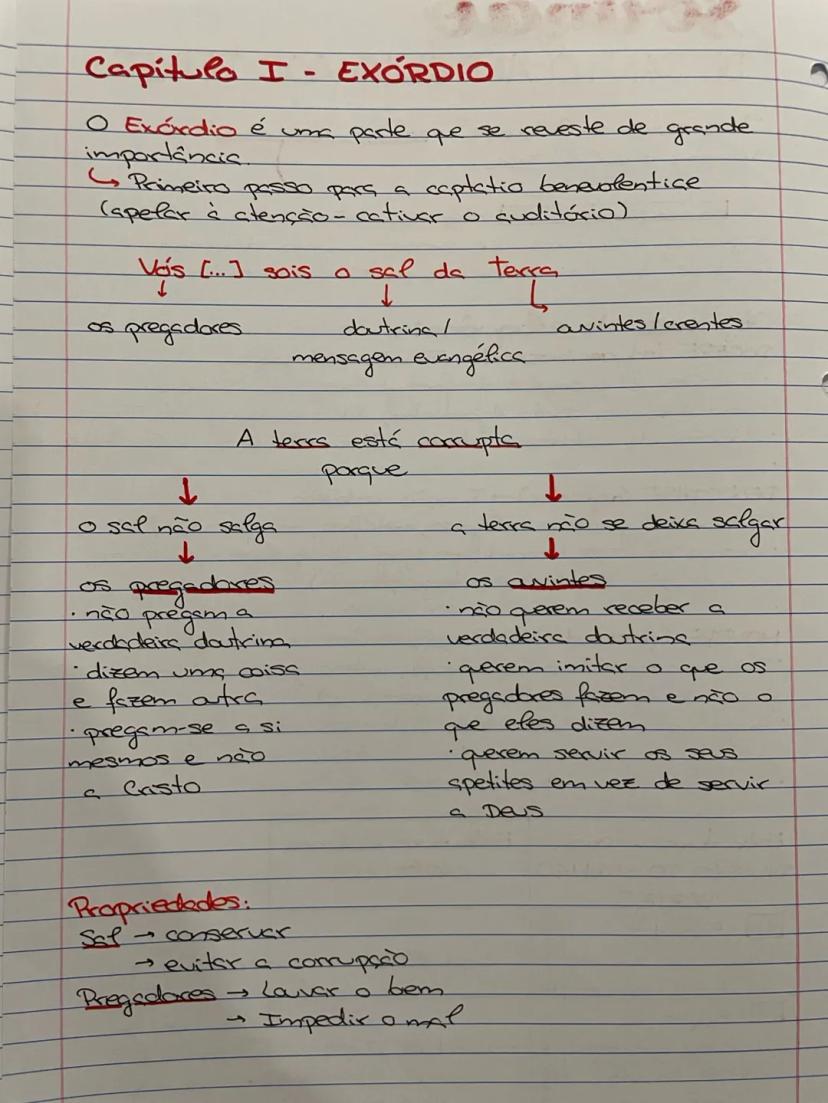 Capítulo I - EXÓRDIO
O Exórdio é uma parte que se reveste de grande
importância.
↳ Primeiro passo para a captatio benevolentice
(apelar à atenção - cativar o auditório)
Vós [...] sois o sal da Terra
↓ ↓ ↳
os pregadores doutrina / ouvintes / crentes
mensagem evangélica
A terra está corrupta
porque
↓ ↓
o sal não salga a terra não se deixa salgar
↓ ↓
os pregadores os ouvintes
· não pregam a · não querem receber a
verdadeira doutrina verdadeira doutrina
· dizem uma coisa · querem imitar o que os
e fazem outra pregadores fazem e não o
· pregam-se a si que eles dizem
mesmos e não · querem servir os seus
a Cristo apetites em vez de servir
a Deus
Propriedades:
Sal → conservar
→ evitar a corrupção
Pregadores → Louvar o bem
→ Impedir o mal